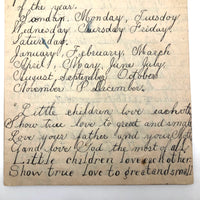 of the year.
Sunday. Monday, Tuesday
Wednesday Thursday Friday,
Saturday.
January, February, March
April, May, June July,
August, September October
November December.
Little children love each oth
Show true love to great and small
Love your father and your
and love God the most of all
Little children love each other
Show true love to great and small